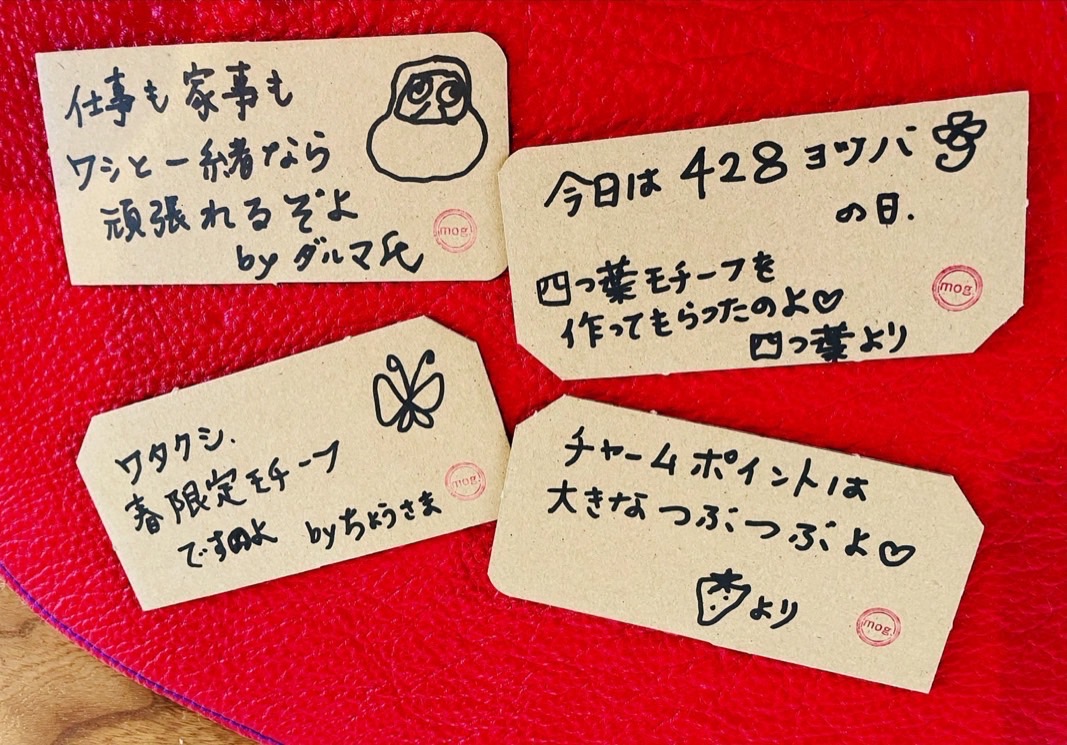 仕事も家事も
ワシと一緒なら
頑張れるぞよ
by ダルマ氏
mog.
今日は428ヨツバ
の日.
四つ葉モチーフを
作ってもらったのよ♡
四つ葉より
mog.
ワタクシ.
春限定モチーフ
ですのよ byちょうさま
mog.
チャームポイントは
大きなつぶつぶよ♡
より
mog.